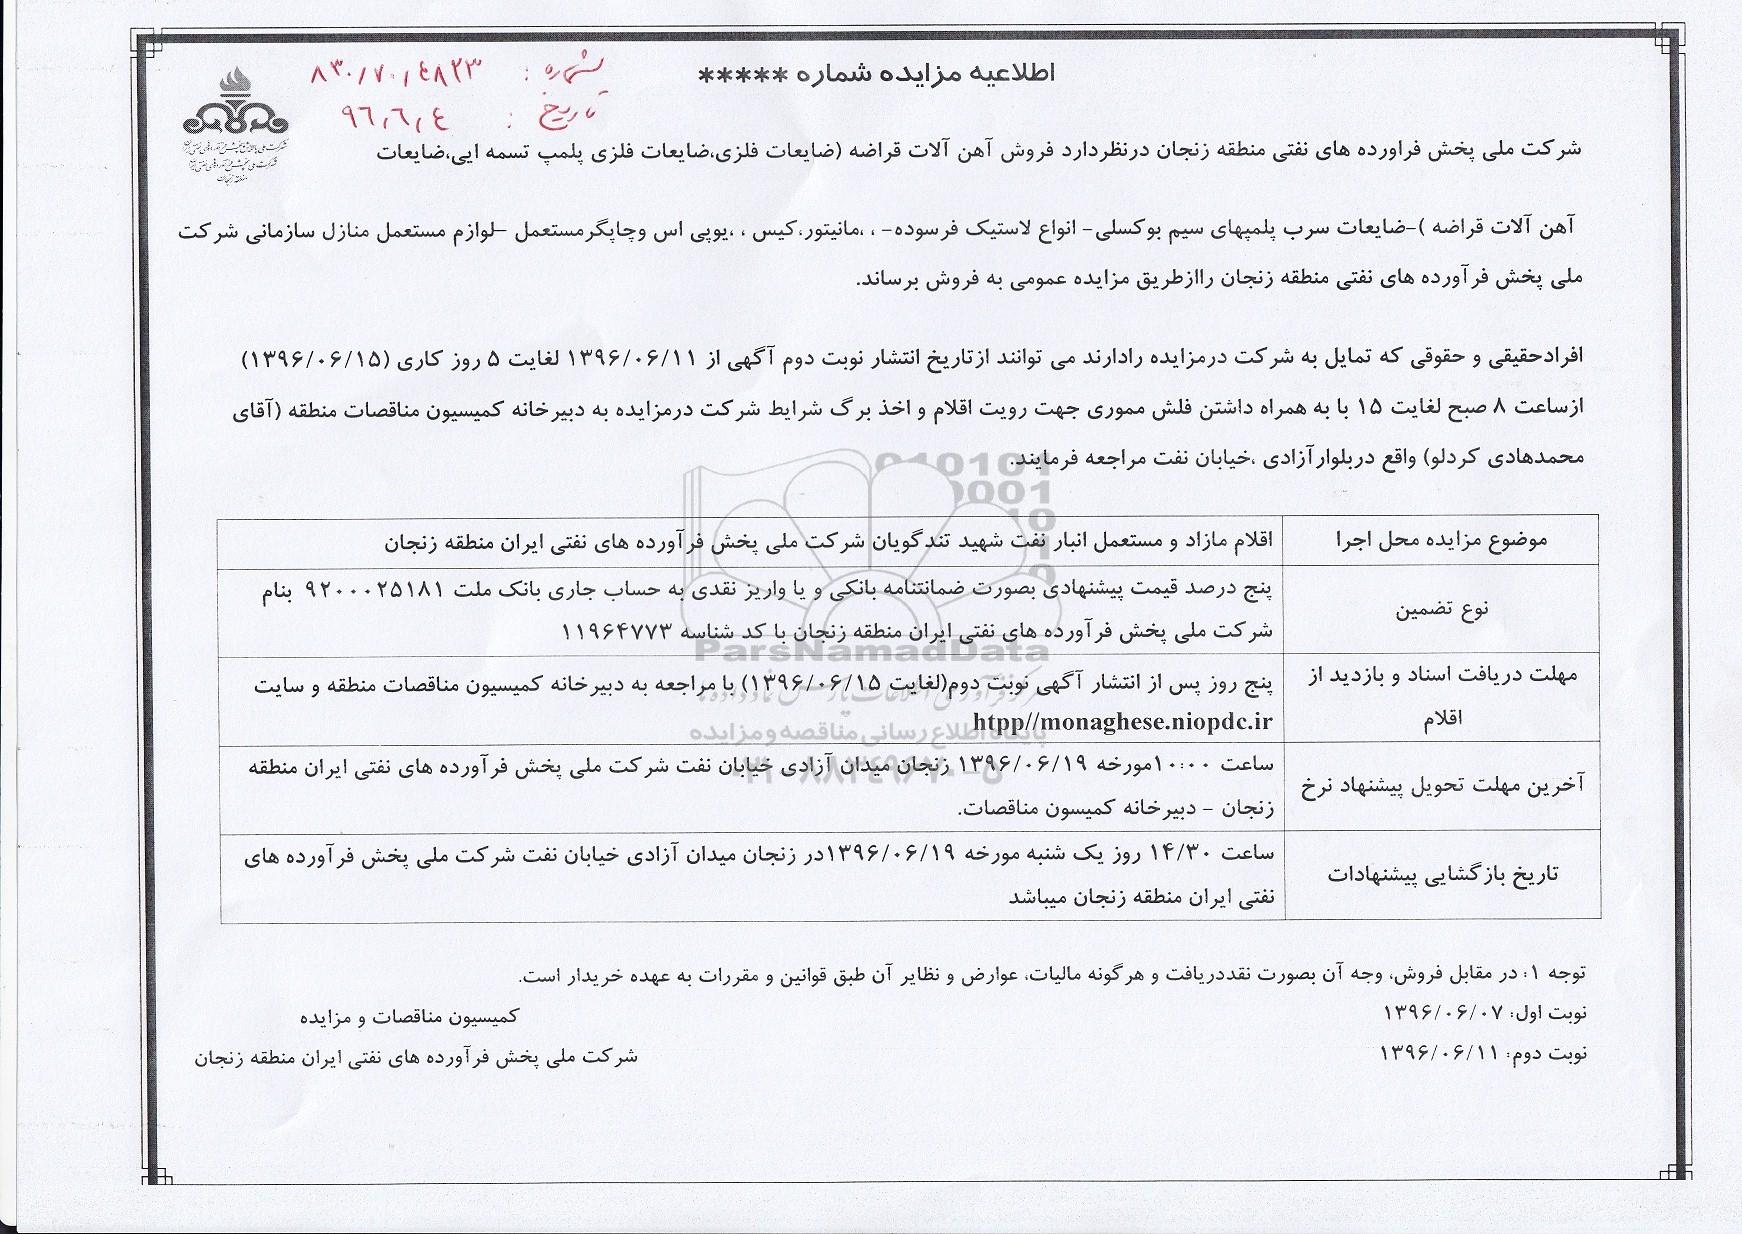 اطلاعیه مزایده شماره *****
شماره : ۸۳۰/۷۰/٤۸۲۳
تاریخ : ۹٦/٦/٤
شرکت ملی پخش فراورده های نفتی منطقه زنجان درنظردارد فروش آهن آلات قراضه (ضایعات فلزی،ضایعات فلزی پلمپ تسمه ایی،ضایعات
آهن آلات قراضه )-ضایعات سرب پلمپهای سیم بوکسلی- انواع لاستیک فرسوده- ، ،مانیتور،کیس ، ،یوپی اس وچاپگرمستعمل –لوازم مستعمل منازل سازمانی شرکت
ملی پخش فرآورده های نفتی منطقه زنجان راازطریق مزایده عمومی به فروش برساند.
افرادحقیقی و حقوقی که تمایل به شرکت درمزایده رادارند می توانند ازتاریخ انتشار نوبت دوم آگهی از ۱۳۹۶/۰۶/۱۱ لغایت ۵ روز کاری (۱۳۹۶/۰۶/۱۵)
ازساعت ۸ صبح لغایت ۱۵ با به همراه داشتن فلش مموری جهت رویت اقلام و اخذ برگ شرایط شرکت درمزایده به دبیرخانه کمیسیون مناقصات منطقه (آقای
محمدهادی کردلو) واقع دربلوارآزادی ،خیابان نفت مراجعه فرمایند.
موضوع مزایده محل اجرا
اقلام مازاد و مستعمل انبار نفت شهید تندگویان شرکت ملی پخش فرآورده های نفتی ایران منطقه زنجان
نوع تضمین
پنج درصد قیمت پیشنهادی بصورت ضمانتنامه بانکی و یا واریز نقدی به حساب جاری بانک ملت ۹۲۰۰۰۲۵۱۸۱ بنام
شرکت ملی پخش فرآورده های نفتی ایران منطقه زنجان با کد شناسه ۱۱۹۶۴۷۷۳
مهلت دریافت اسناد و بازدید از
اقلام
پنج روز پس از انتشار آگهی نوبت دوم(لغایت ۱۳۹۶/۰۶/۱۵) با مراجعه به دبیرخانه کمیسیون مناقصات منطقه و سایت
htpp//monaghese.niopdc.ir
آخرین مهلت تحویل پیشنهاد نرخ
ساعت ۱۰:۰۰مورخه ۱۳۹۶/۰۶/۱۹ زنجان میدان آزادی خیابان نفت شرکت ملی پخش فرآورده های نفتی ایران منطقه
زنجان – دبیرخانه کمیسون مناقصات.
تاریخ بازگشایی پیشنهادات
ساعت ۱۴/۳۰ روز یک شنبه مورخه ۱۳۹۶/۰۶/۱۹در زنجان میدان آزادی خیابان نفت شرکت ملی پخش فرآورده های
نفتی ایران منطقه زنجان میباشد
توجه ۱: در مقابل فروش، وجه آن بصورت نقددریافت و هرگونه مالیات، عوارض و نظایر آن طبق قوانین و مقررات به عهده خریدار است.
نوبت اول: ۱۳۹۶/۰۶/۰۷
نوبت دوم: ۱۳۹۶/۰۶/۱۱
کمیسیون مناقصات و مزایده
شرکت ملی پخش فرآورده های نفتی ایران منطقه زنجان
منطقه زنجان
ParsNamadData
پایگاه اطلاع رسانی مناقصه و مزایده